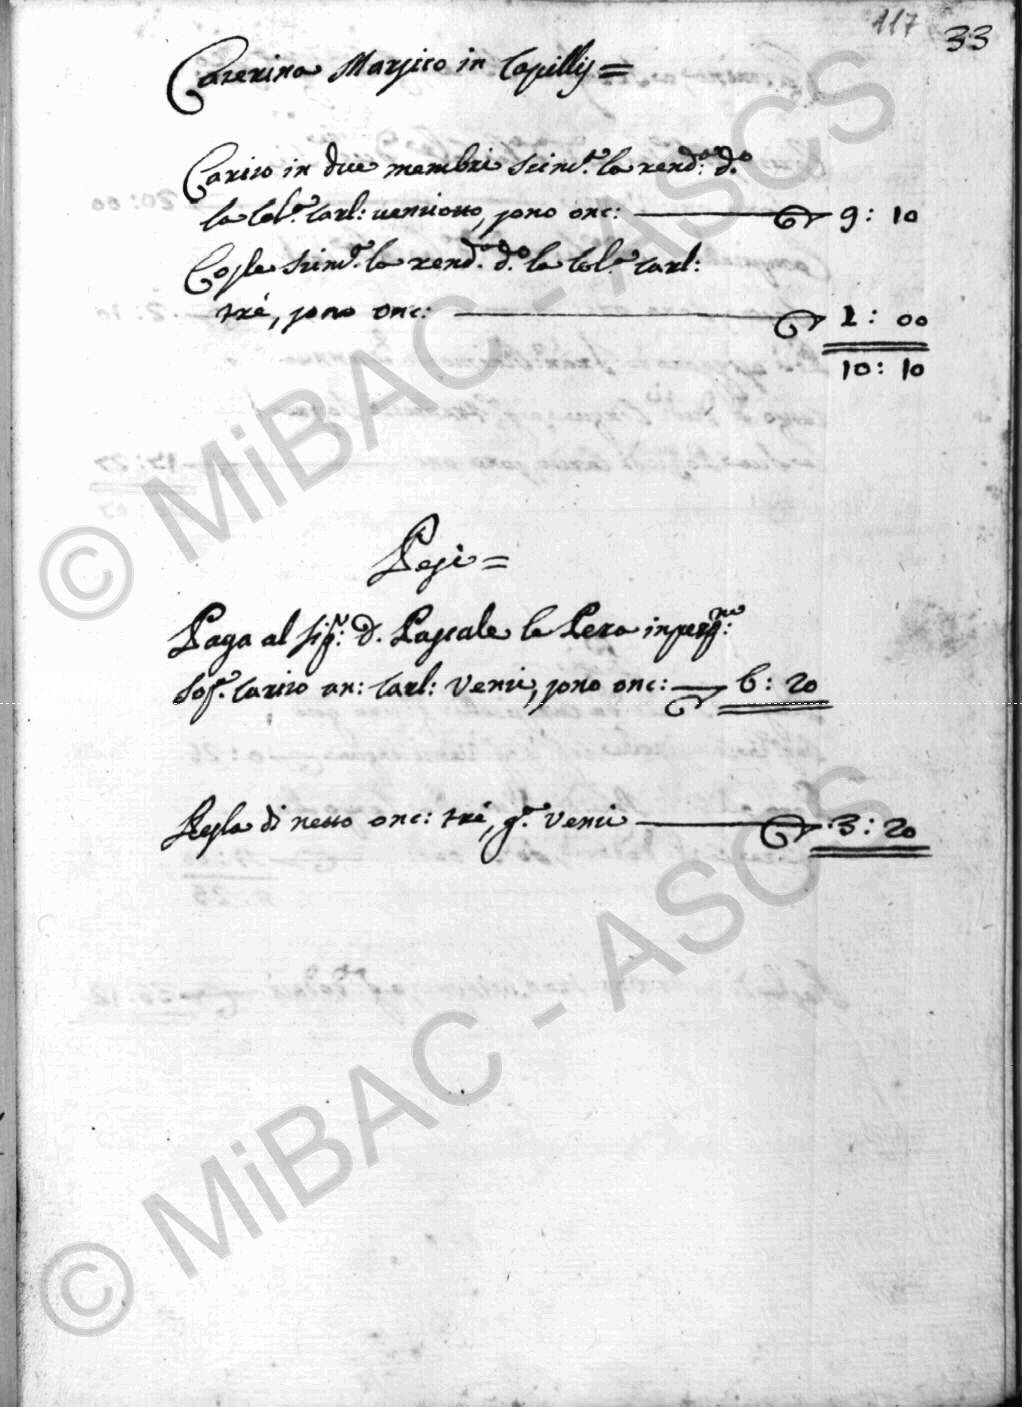 117 33
Caterina Marsico in Capillis =
Cariso in due membri stim.ta la rend.a d.o
la Col.a Carl: ventiotto, sono onc: 9 : 10
Cosle stim.ta la rend.a d.o la Col.a Carl:
trè, sono onc: 1 : 00
10 : 10
Pesi =
Paga al Sig.r D. Pascale le Pera in perp.ne:
Sop.a Cariso an: Carl: Venti, sono onc: 6 : 20
Resta di netto onc: trè, g.a Venti 3 : 20
© MiBAC - ASCS
© MiBAC - ASCS